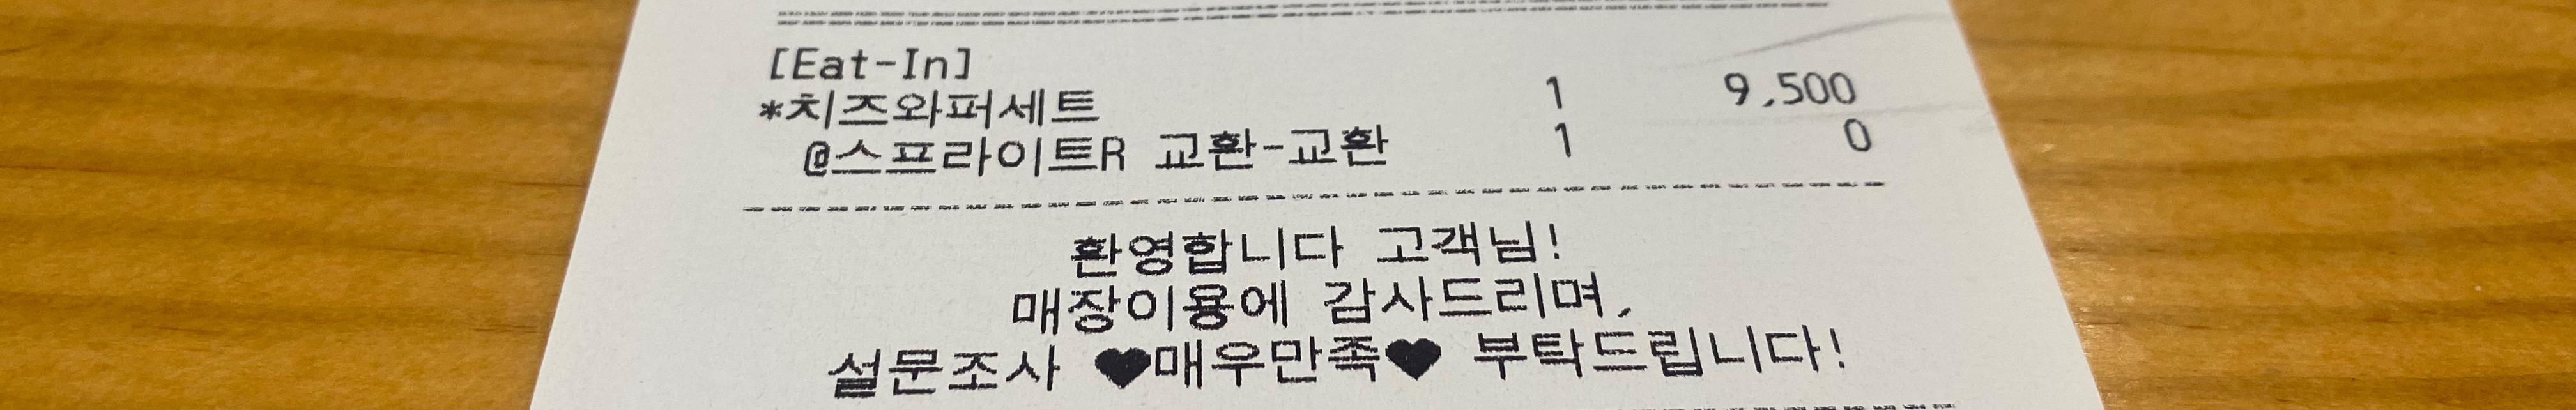 [Eat-In]
*치즈와퍼세트 1 9,500
@스프라이트R 교환-교환 1 0
환영합니다 고객님!
매장이용에 감사드리며,
설문조사 ♥매우만족♥ 부탁드립니다!